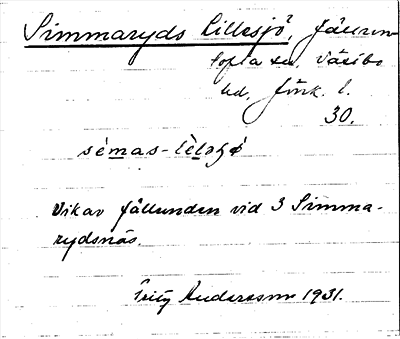 Simmaryds Lillesjö, Jälluntofta sn, Västbo
hd, Jönk. l.
30.
sèmas-lèlsʃø
Vik av Jällunden vid 3 Simma-
rydsnäs.
Fritz Andersson 1931.